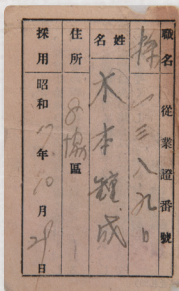 職名 從業證番號
採 一三八九〇
姓名 木本鐘成
住所 協區
採用昭和17年10月29日